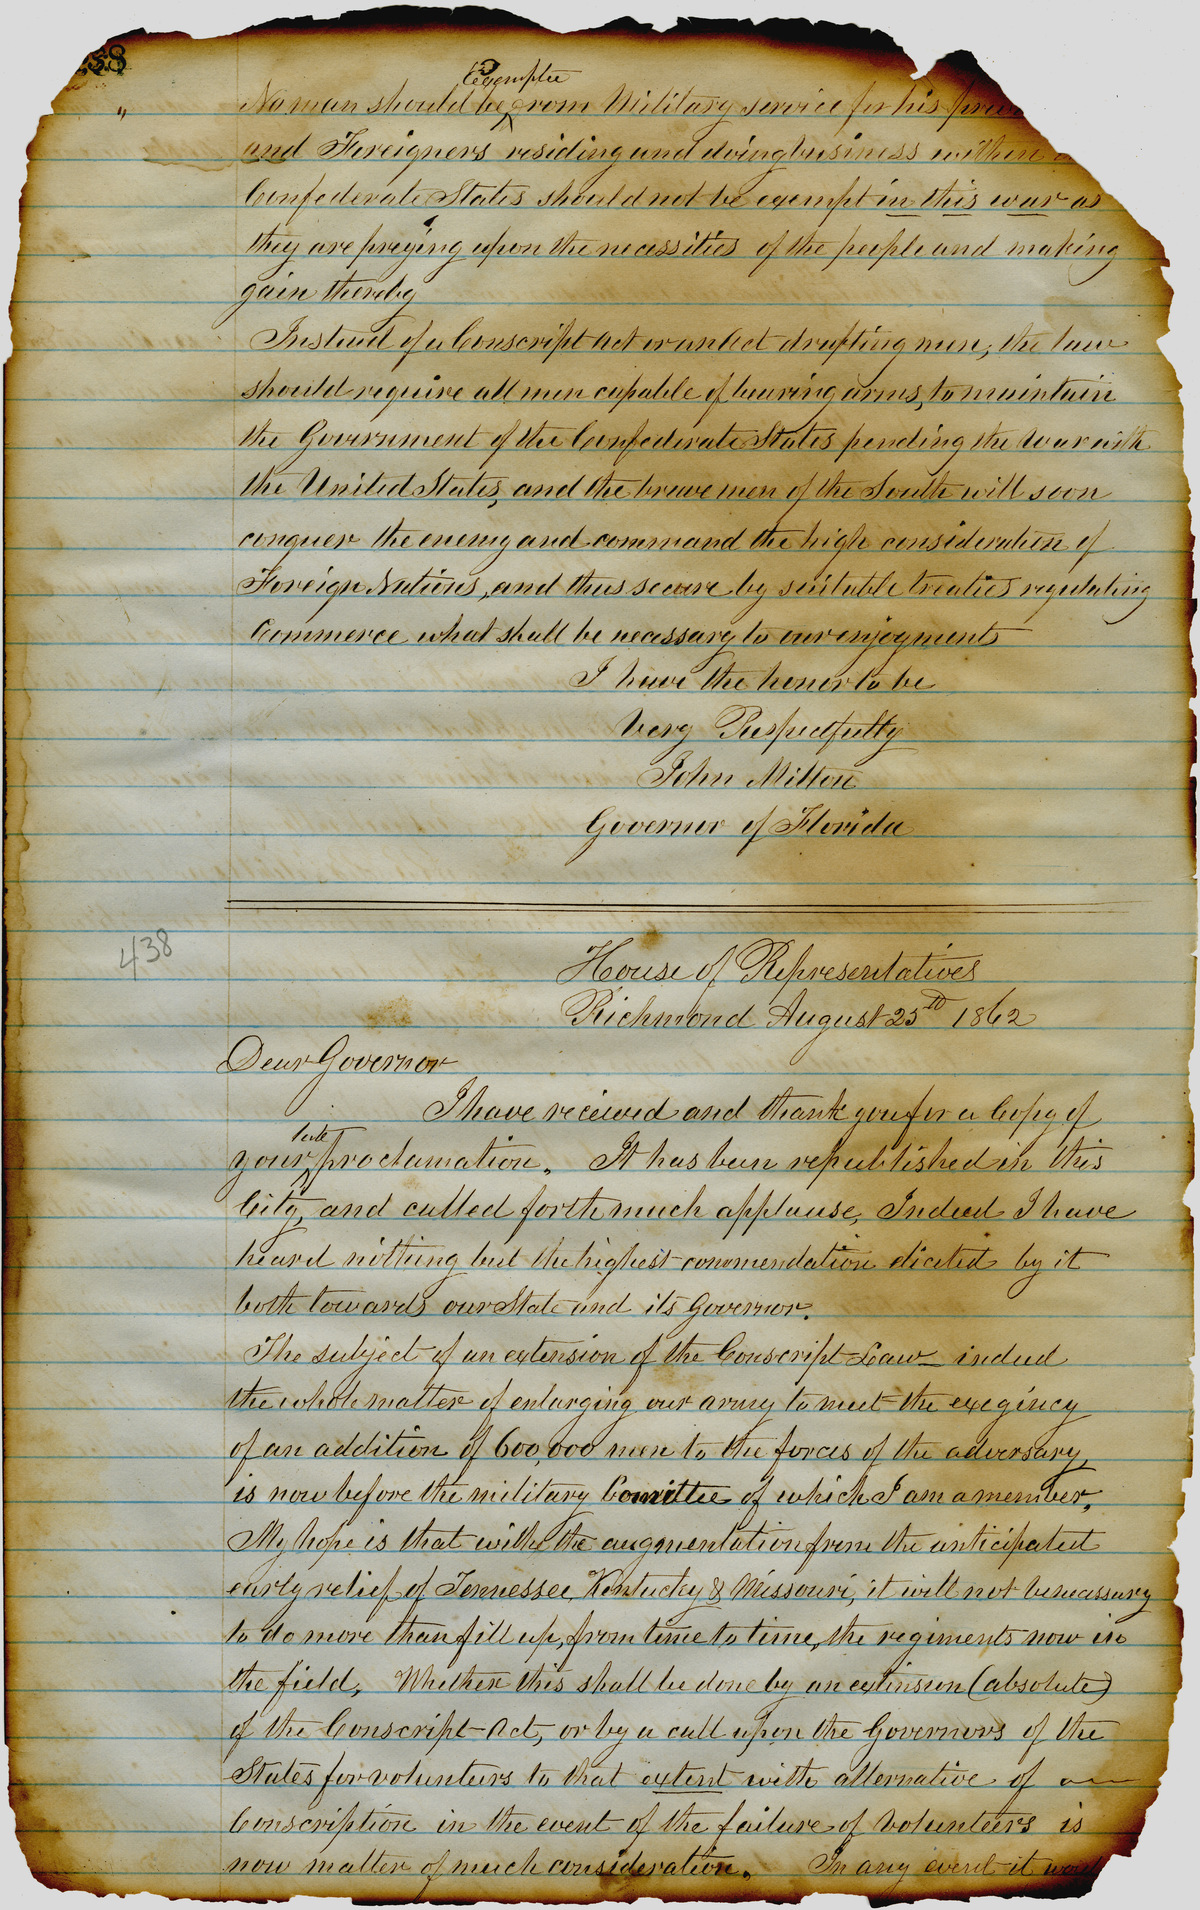 58
Exempted
" No man should be from Military service for his
and Foreigners residing and doing business within
Confederate States should not be exempt in this war as
they are preying upon the necessities of the people and making
gain thereby
Instead of a Conscript Act or an Act drafting men, the law
should require all men capable of bearing arms, to maintain
the Government of the Confederate States pending the war with
the United States, and the brave men of the South will soon
conquer the enemy and command the high consideration of
Foreign Nations, and thus secure by suitable treaties regulating
Commerce what shall be necessary to our enjoyments
I have the honor to be
Very Respectfully
John Milton
Governor of Florida
438
House of Representatives
Richmond August 25th 1862
Dear Governor
I have received and thank you for a Copy of
late
your proclamation. It has been republished in this
City, and called forth much applause, Indeed I have
heard nothing but the highest commendation elicited by it
both towards our State and its Governor.
The subject of an extension of the Conscript Law indeed
the whole matter of enlarging our army to meet the exegincy
of an addition of 600,000 men to the forces of the adversary,
is now before the military Comittee of which I am a member,
My hope is that with the augmentation from the anticipated
early relief of Tennessee, Kentucky & Missouri, it will not be necessary
to do more than fill up, from time to time, the regiments now in
the field, Whether this shall be done by an extension (absolute)
of the Conscript Act, or by a call upon the Governors of the
States for volunteers to that extent with alternative of a
Conscription in the event of the failure of Volunteers is
now matter of much consideration. In any event it